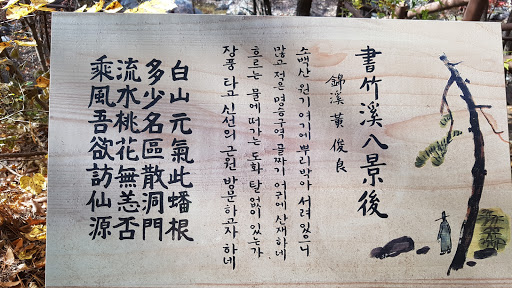 書竹溪八景後
錦溪 黃俊良
소백산 원기 여기에 뿌리박아 서려 있으니
많고 적은 명승구역 골짜기 어귀에 산재하네
흐르는 물에 떠가는 도화 탈 없이 있는가
장풍 타고 신선의 근원 방문하고자 하네
白山元氣此蟠根
多少名區散洞門
流水桃花無恙否
乘風吾欲訪仙源